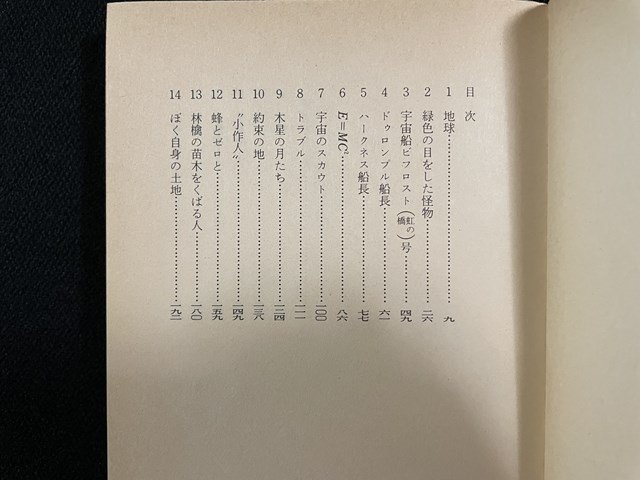 目次
1 地球……………………九
2 緑色の目をした怪物……………………二六
3 宇宙船ビフロスト（虹の橋）号……………………四九
4 ドゥロンプル船長……………………六一
5 ハークネス船長……………………七七
6 E=MC²……………………八六
7 宇宙のスカウト……………………一〇〇
8 トラブル……………………一一一
9 木星の月たち……………………一二四
10 約束の地……………………一三八
11 〝小作人〟……………………一四九
12 蜂とゼロと……………………一五九
13 林檎の苗木をくばる人……………………一八〇
14 ぼく自身の土地……………………一九二